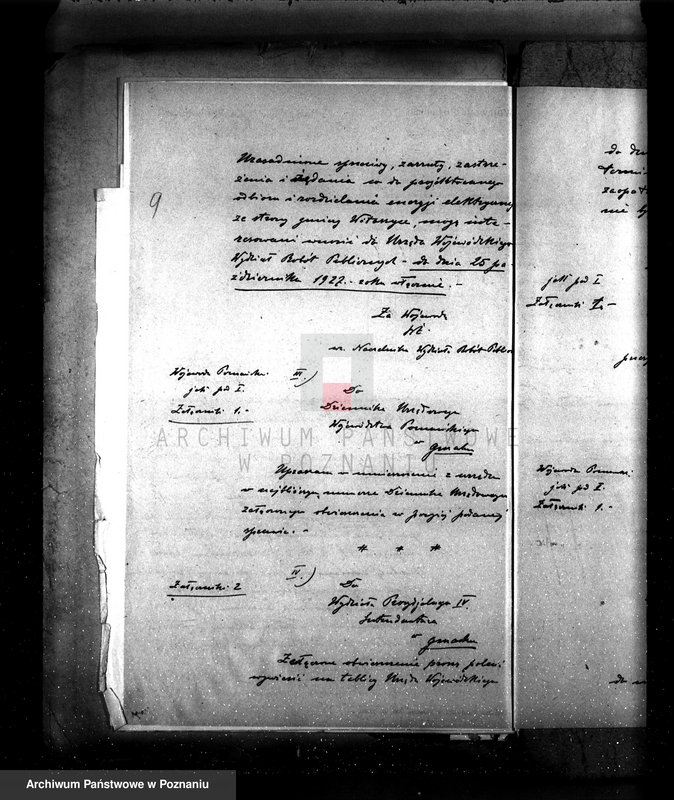 9
Uzasadnione sprzeciwy, zarzuty, zastrze-
żenia i żądania co do projektowanego
odbioru i rozdzielania energji elektrycznej
ze strony gminy mogą inte-
resowani wnosić do Urzędu Wojewódzkiego
Wydział Robót Publicznych - do dnia 25 pa-
ździernika 1927. - roku włącznie. -
Za Wojewodę
wz. Naczelnika Wydziału Robót Publ
Wojewoda Poznański
jak pod I.
Załączniki 1. -
III.)
Do
Dziennika Urzędowego
Województwa Poznańskiego
w gmachu
Upraszam o umieszczenie z urzędu
w najbliższym numerze Dziennika Urzędowego
załączonego obwieszczenia w
* * *
Załączniki 2
IV.)
Do
Wydziału Prezydjalnego IV.
Intendantura
w gmachu
Załączone obwieszczenie proszę polecić
wywiesić na tablicy Urzędu Wojewódzkiego
do
zaopa
nie
jak pod I
Załączniki 1. -
Wojewoda Poznań
jak pod I.
Załączniki 1. -
ARCHIWUM PAŃSTWOWE
W POZNANIU
Archiwum Państwowe w Poznaniu